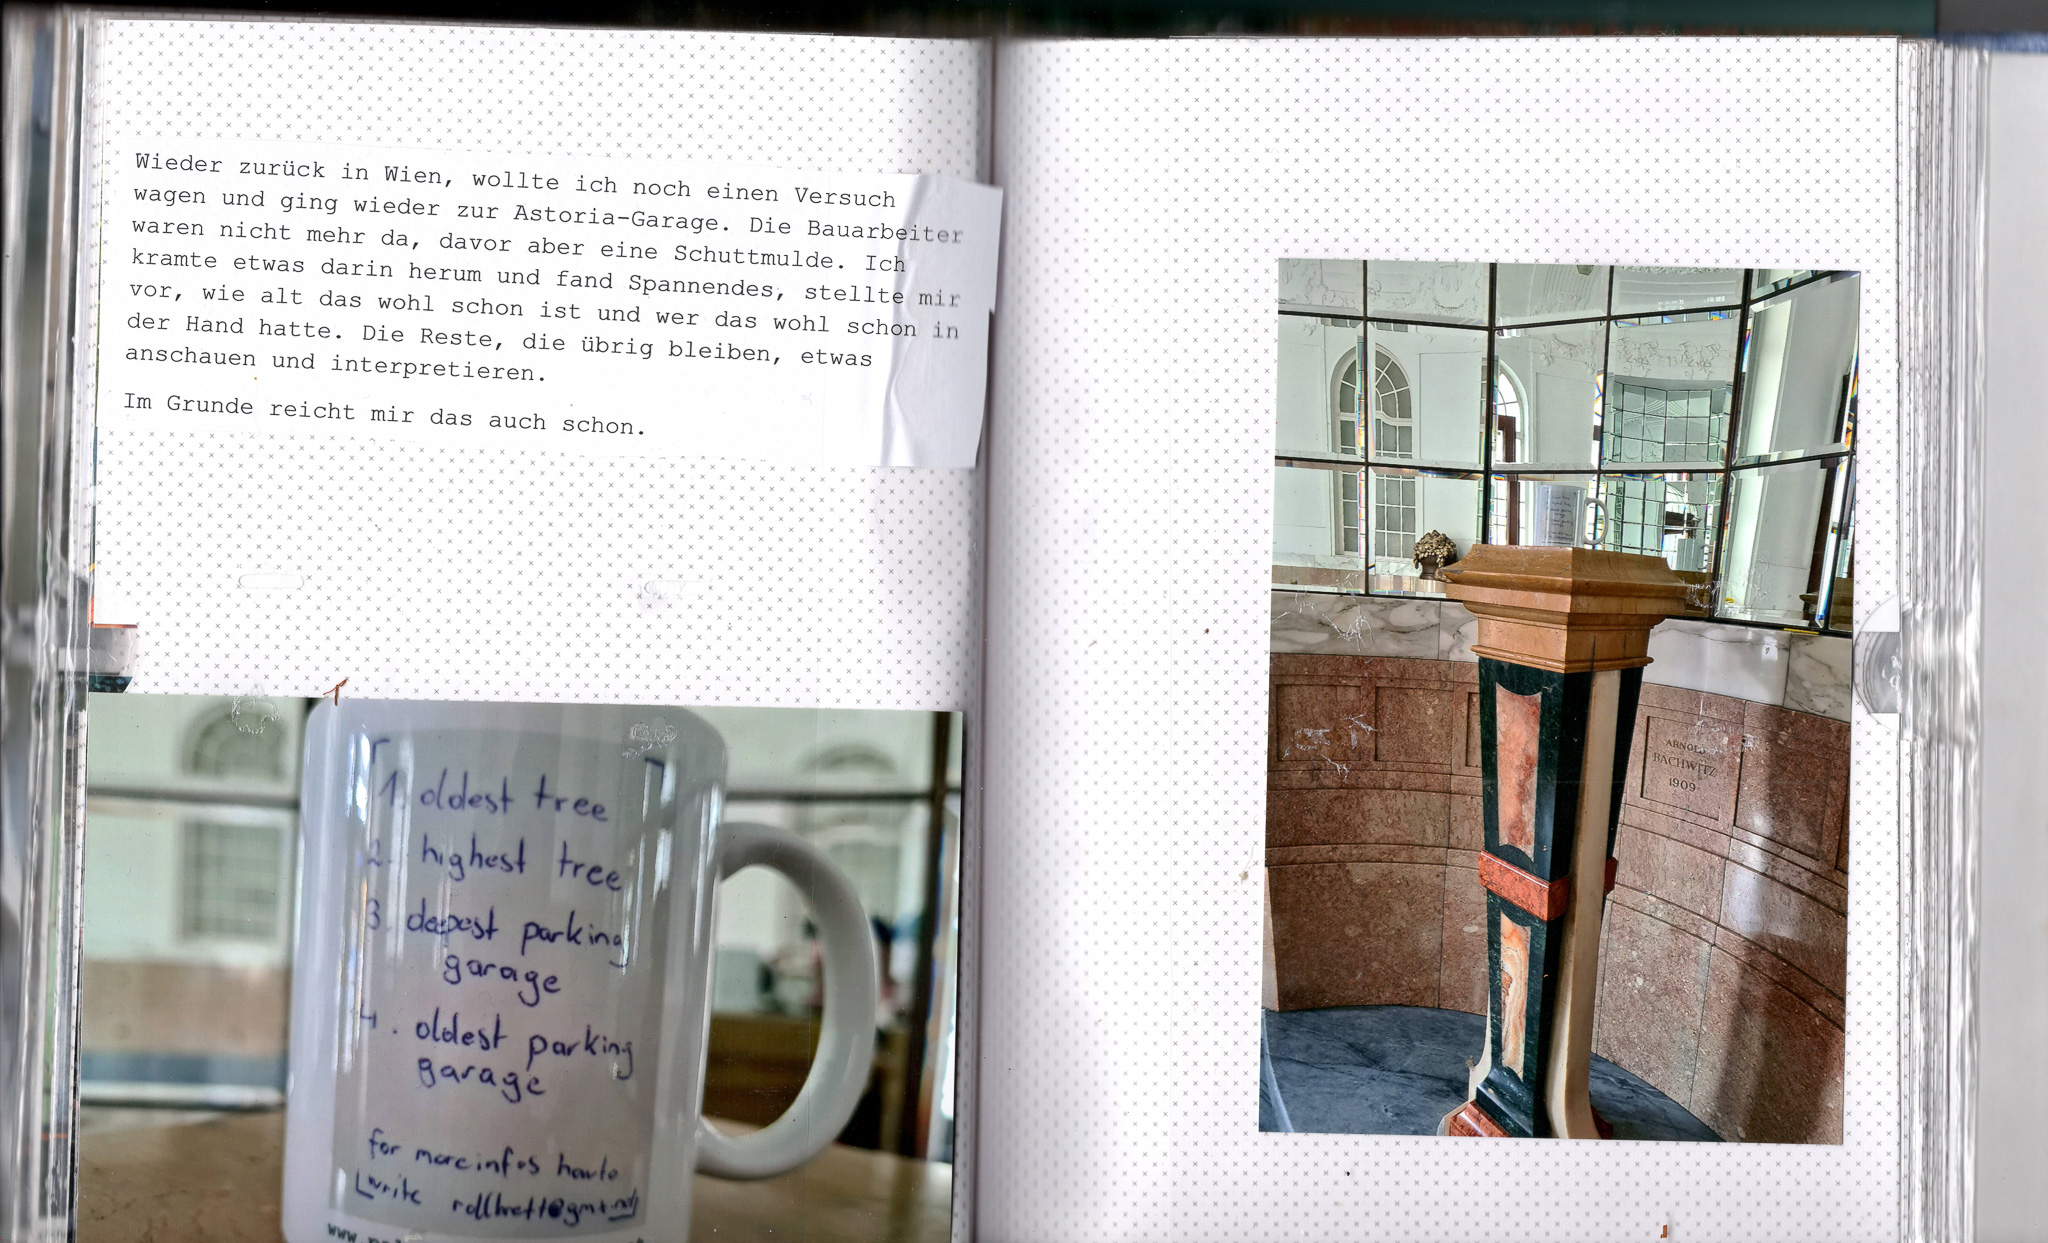 Wieder zurück in Wien, wollte ich noch einen Versuch
wagen und ging wieder zur Astoria-Garage. Die Bauarbeiter
waren nicht mehr da, davor aber eine Schuttmulde. Ich
kramte etwas darin herum und fand Spannendes, stellte mir
vor, wie alt das wohl schon ist und wer das wohl schon in
der Hand hatte. Die Reste, die übrig bleiben, etwas
anschauen und interpretieren.
Im Grunde reicht mir das auch schon.
1. oldest tree
2. highest tree
3. deepest parking
garage
4. oldest parking
garage
for more infos how to
write rollbrett@gmx.net
www
ARNOLD
BACHWITZ
1909